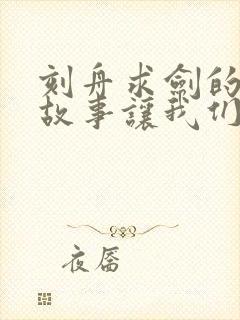 刻舟求劍的
故事讓我们
夜唇